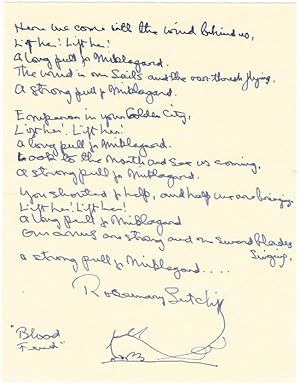 Here we come with the wind behind us,
Lift her! Lift her!
A long pull for Miklagard.
The wind in our Sails and the oar thresh flying,
A strong pull for Miklagard.
Emperor in your Golden City,
Lift her! Lift her!
a long pull for Miklagard.
Look to the North and See us coming,
a strong pull for Miklagard.
You shouted for help, and help we are bringing
Lift her! Lift her!
a long pull for Miklagard
Our arms are strong and our Sword blades
Singing.
a strong pull for Miklagard....
Rosemary Sutcliff
"Blood
Feud"